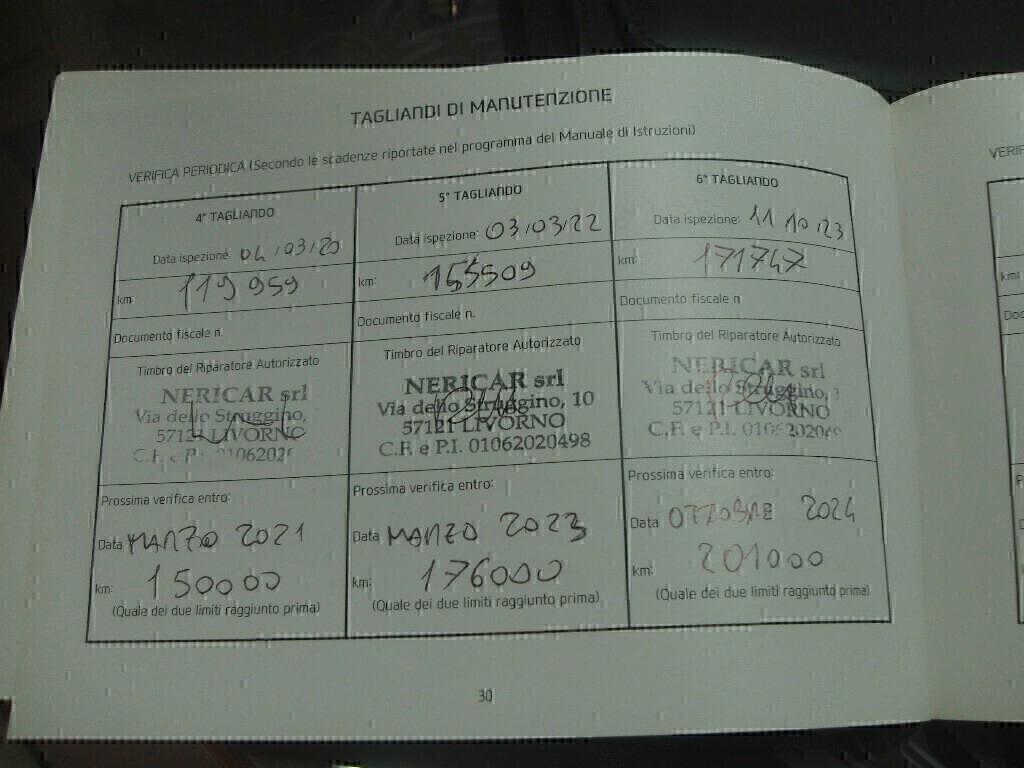 TAGLIANDI DI MANUTENZIONE
VERIFICA PERIODICA (Secondo le scadenze riportate nel programma del Manuale di Istruzioni)
4° TAGLIANDO
Data ispezione: 04/03/20
km: 119 959
Documento fiscale n.
Timbro del Riparatore Autorizzato
NERICAR srl
Via dello Struggino,
57121 LIVORNO
C.F. e P.
Prossima verifica entro:
Data MARZO 2021
km: 150000
(Quale dei due limiti raggiunto prima)
5° TAGLIANDO
Data ispezione: 03/03/22
km: 155509
Documento fiscale n.
Timbro del Riparatore Autorizzato
NERICAR srl
Via dello Struggino, 10
57121 LIVORNO
C.F. e P.I. 01062020498
Prossima verifica entro:
Data MARZO 2023
km: 176000
(Quale dei due limiti raggiunto prima)
6° TAGLIANDO
Data ispezione: 11 10 23
km: 171747
Documento fiscale n
Timbro del Riparatore Autorizzato
NERICAR srl
Via dello Struggino,
57121 LIVORNO
C.F. e P.I.
Prossima verifica entro:
Data OTTOBRE 2024
km: 201000
(Quale dei due limiti raggiunto prima)
30
VERIF
km: